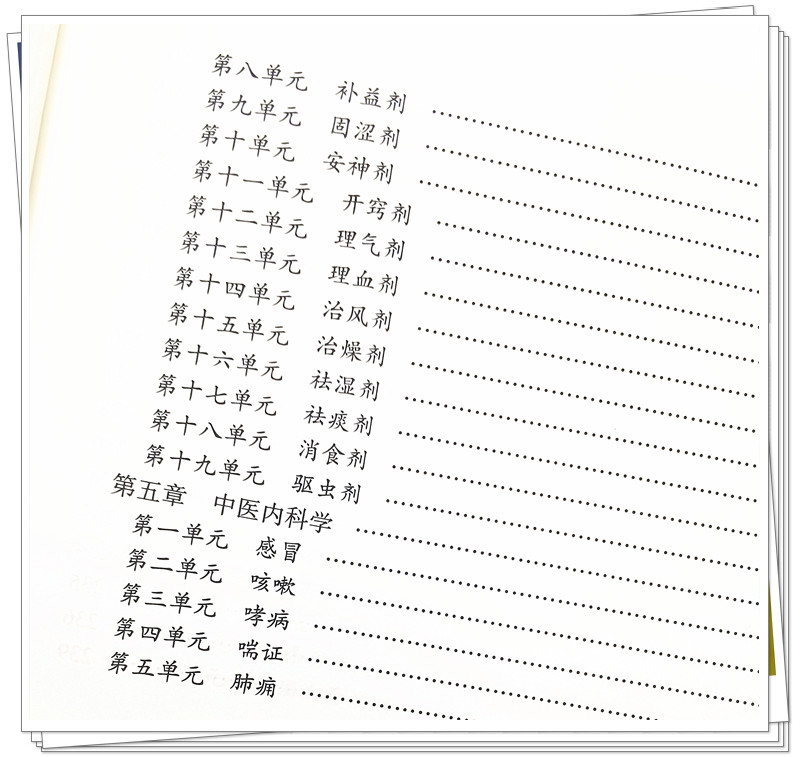 第八单元 补益剂
第九单元 固涩剂
第十单元 安神剂
第十一单元 开窍剂
第十二单元 理气剂
第十三单元 理血剂
第十四单元 治风剂
第十五单元 治燥剂
第十六单元 祛湿剂
第十七单元 祛痰剂
第十八单元 消食剂
第十九单元 驱虫剂
第五章 中医内科学
第一单元 感冒
第二单元 咳嗽
第三单元 哮病
第四单元 喘证
第五单元 肺痈